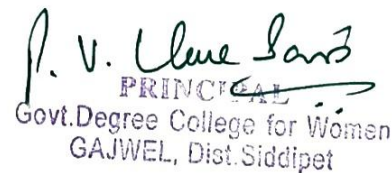 P. V.
PRINCIPAL
Govt.Degree College for Women
GAJWEL, Dist.Siddipet